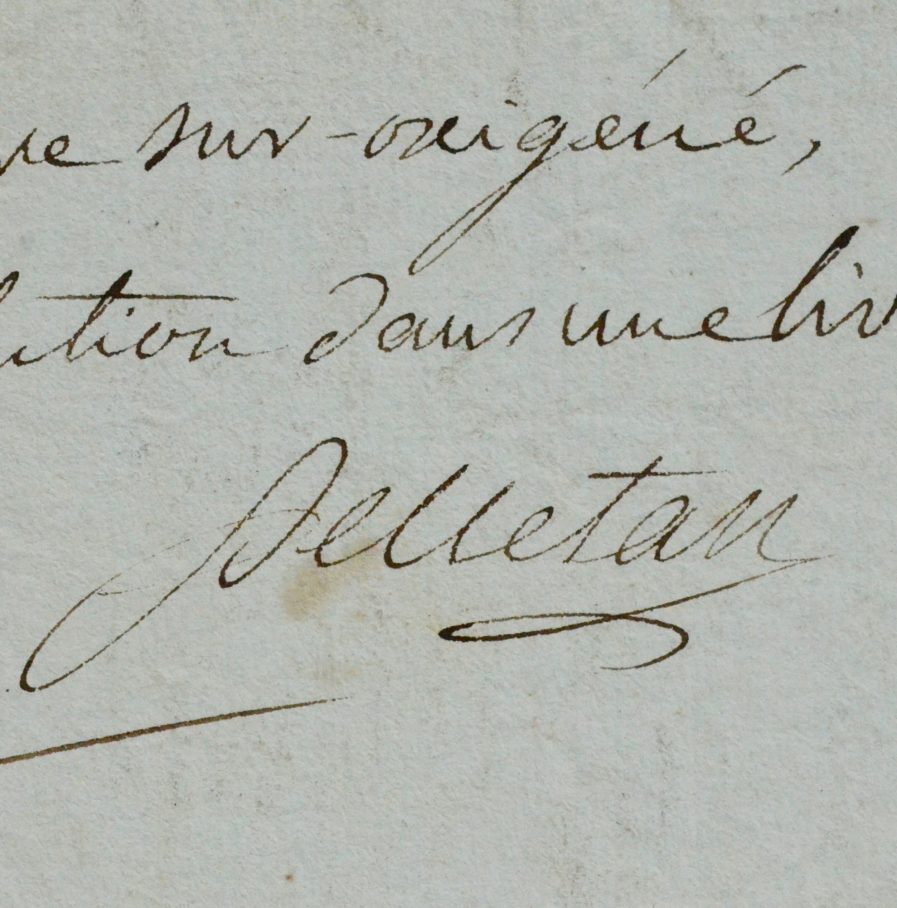 re sur-oxigéné,
lution dans une liv
Pelletan